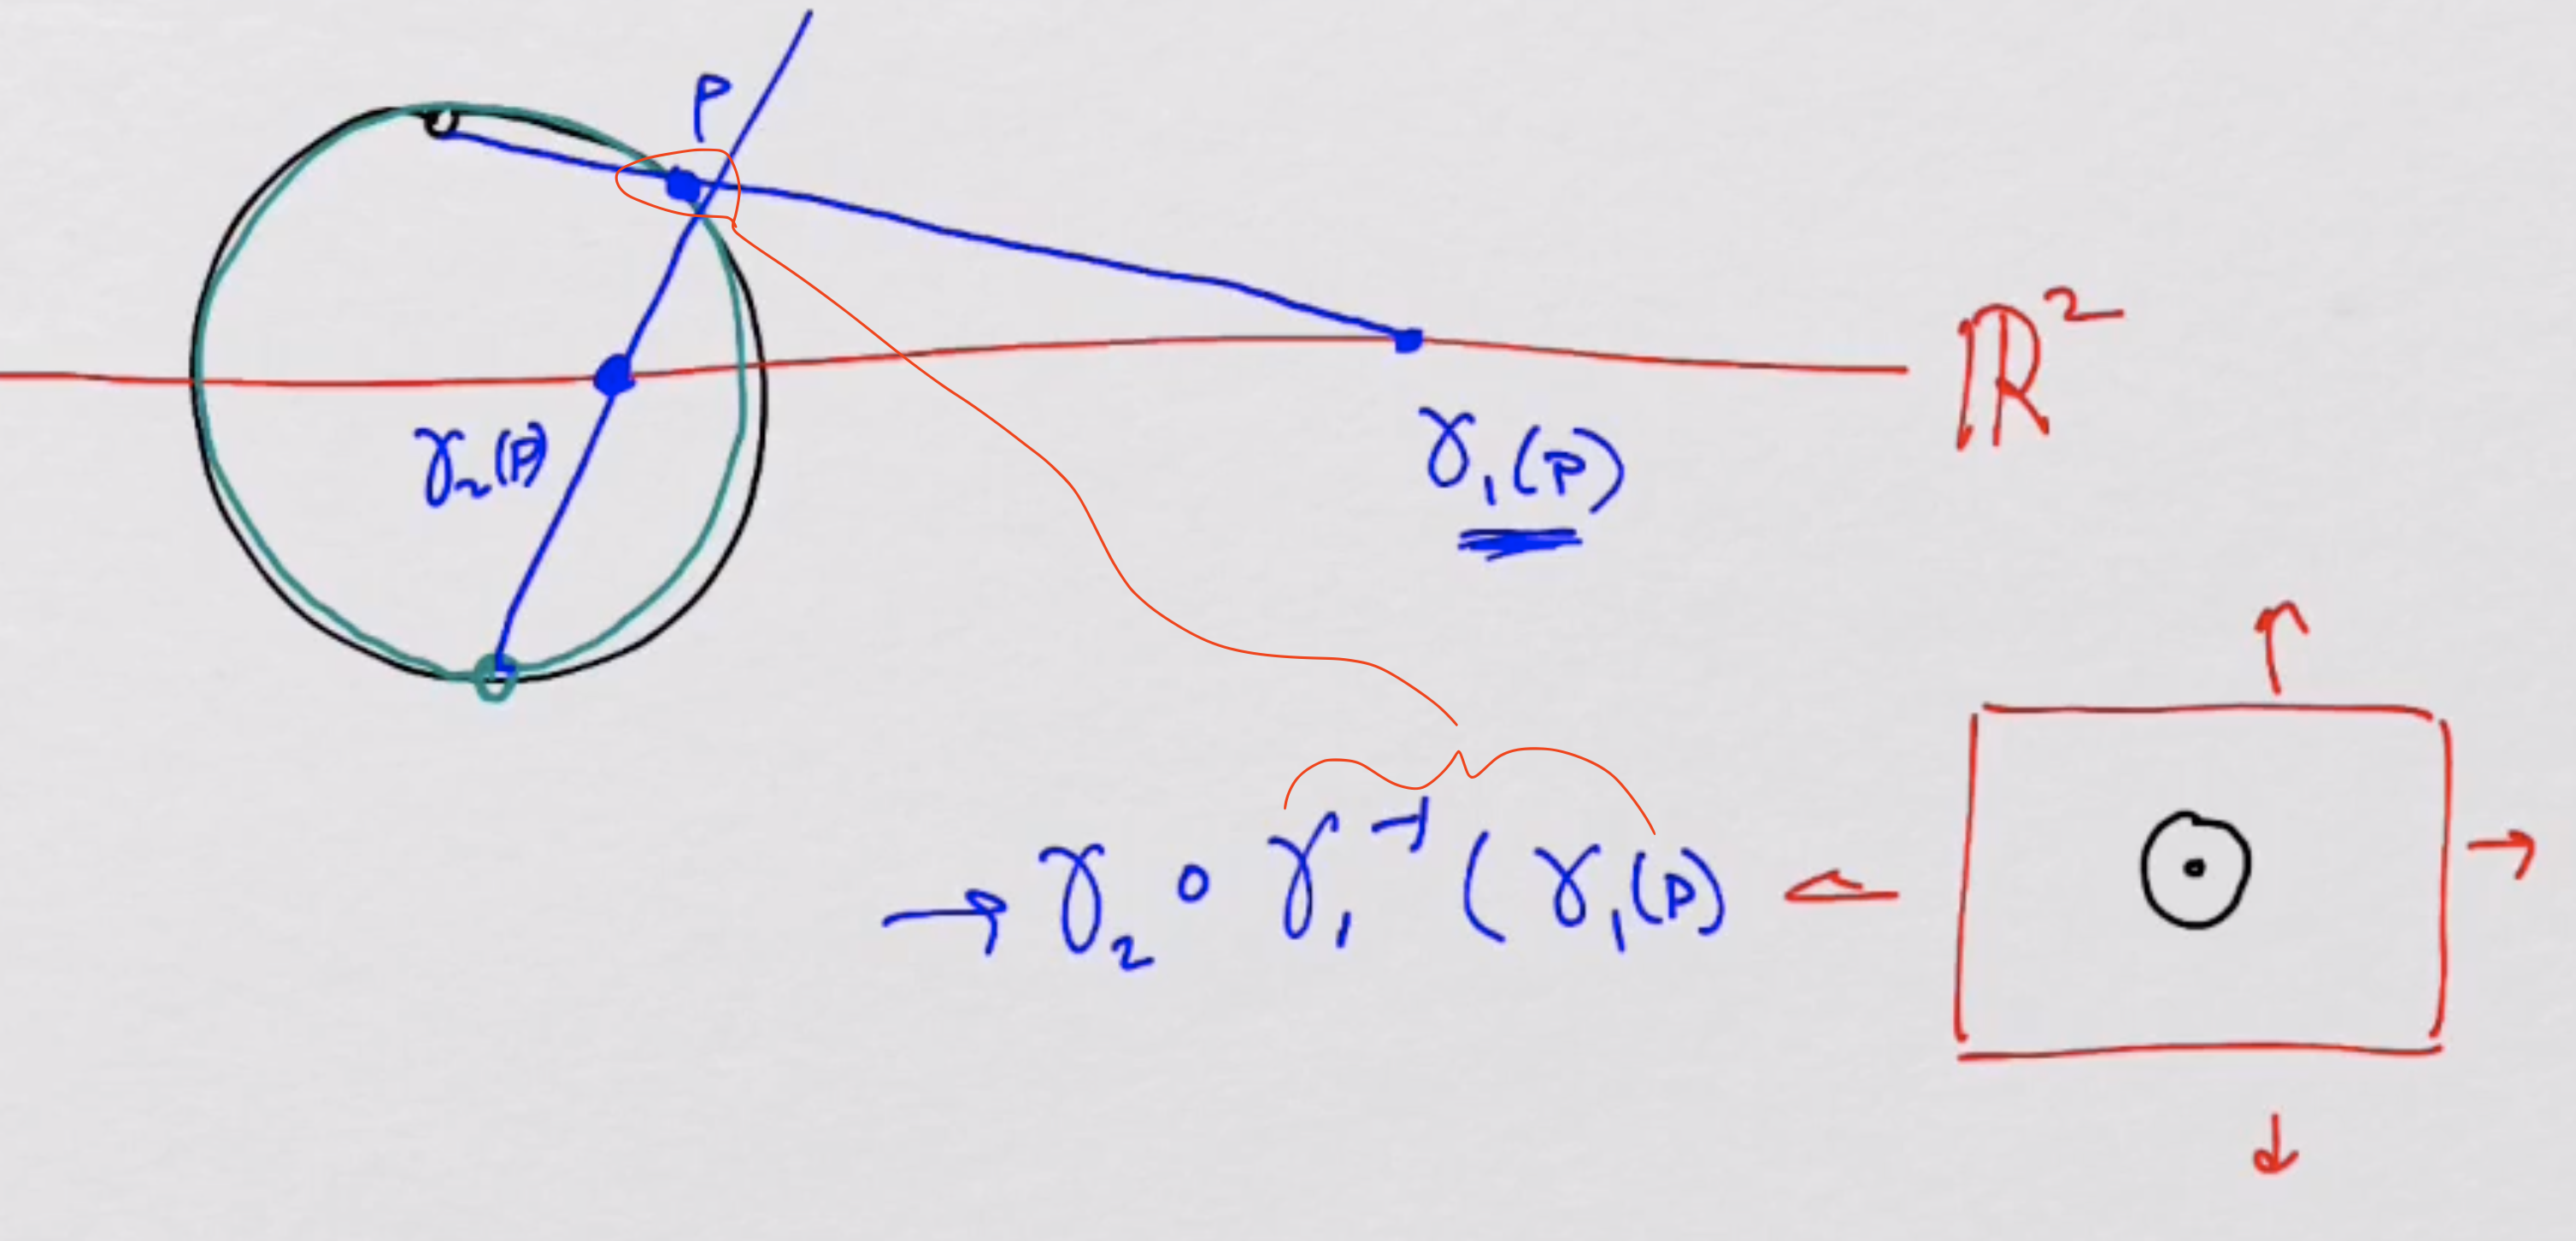 P
ℝ²
γ₂(P)
γ₁(P)
→ γ₂ ∘ γ₁⁻¹ (γ₁(P)